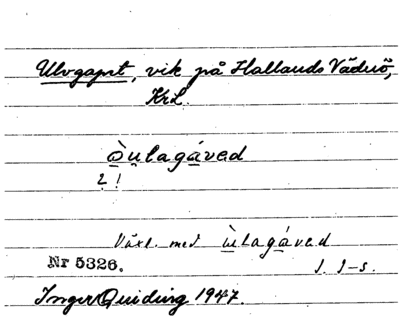 Ulvgapet, vik på Hallands Väderö,
Kr.L.
òu̯lagáved
2 !
Växl. med ùlagáved
Nr 5326. J. I-s.
Inger Quiding 1947.